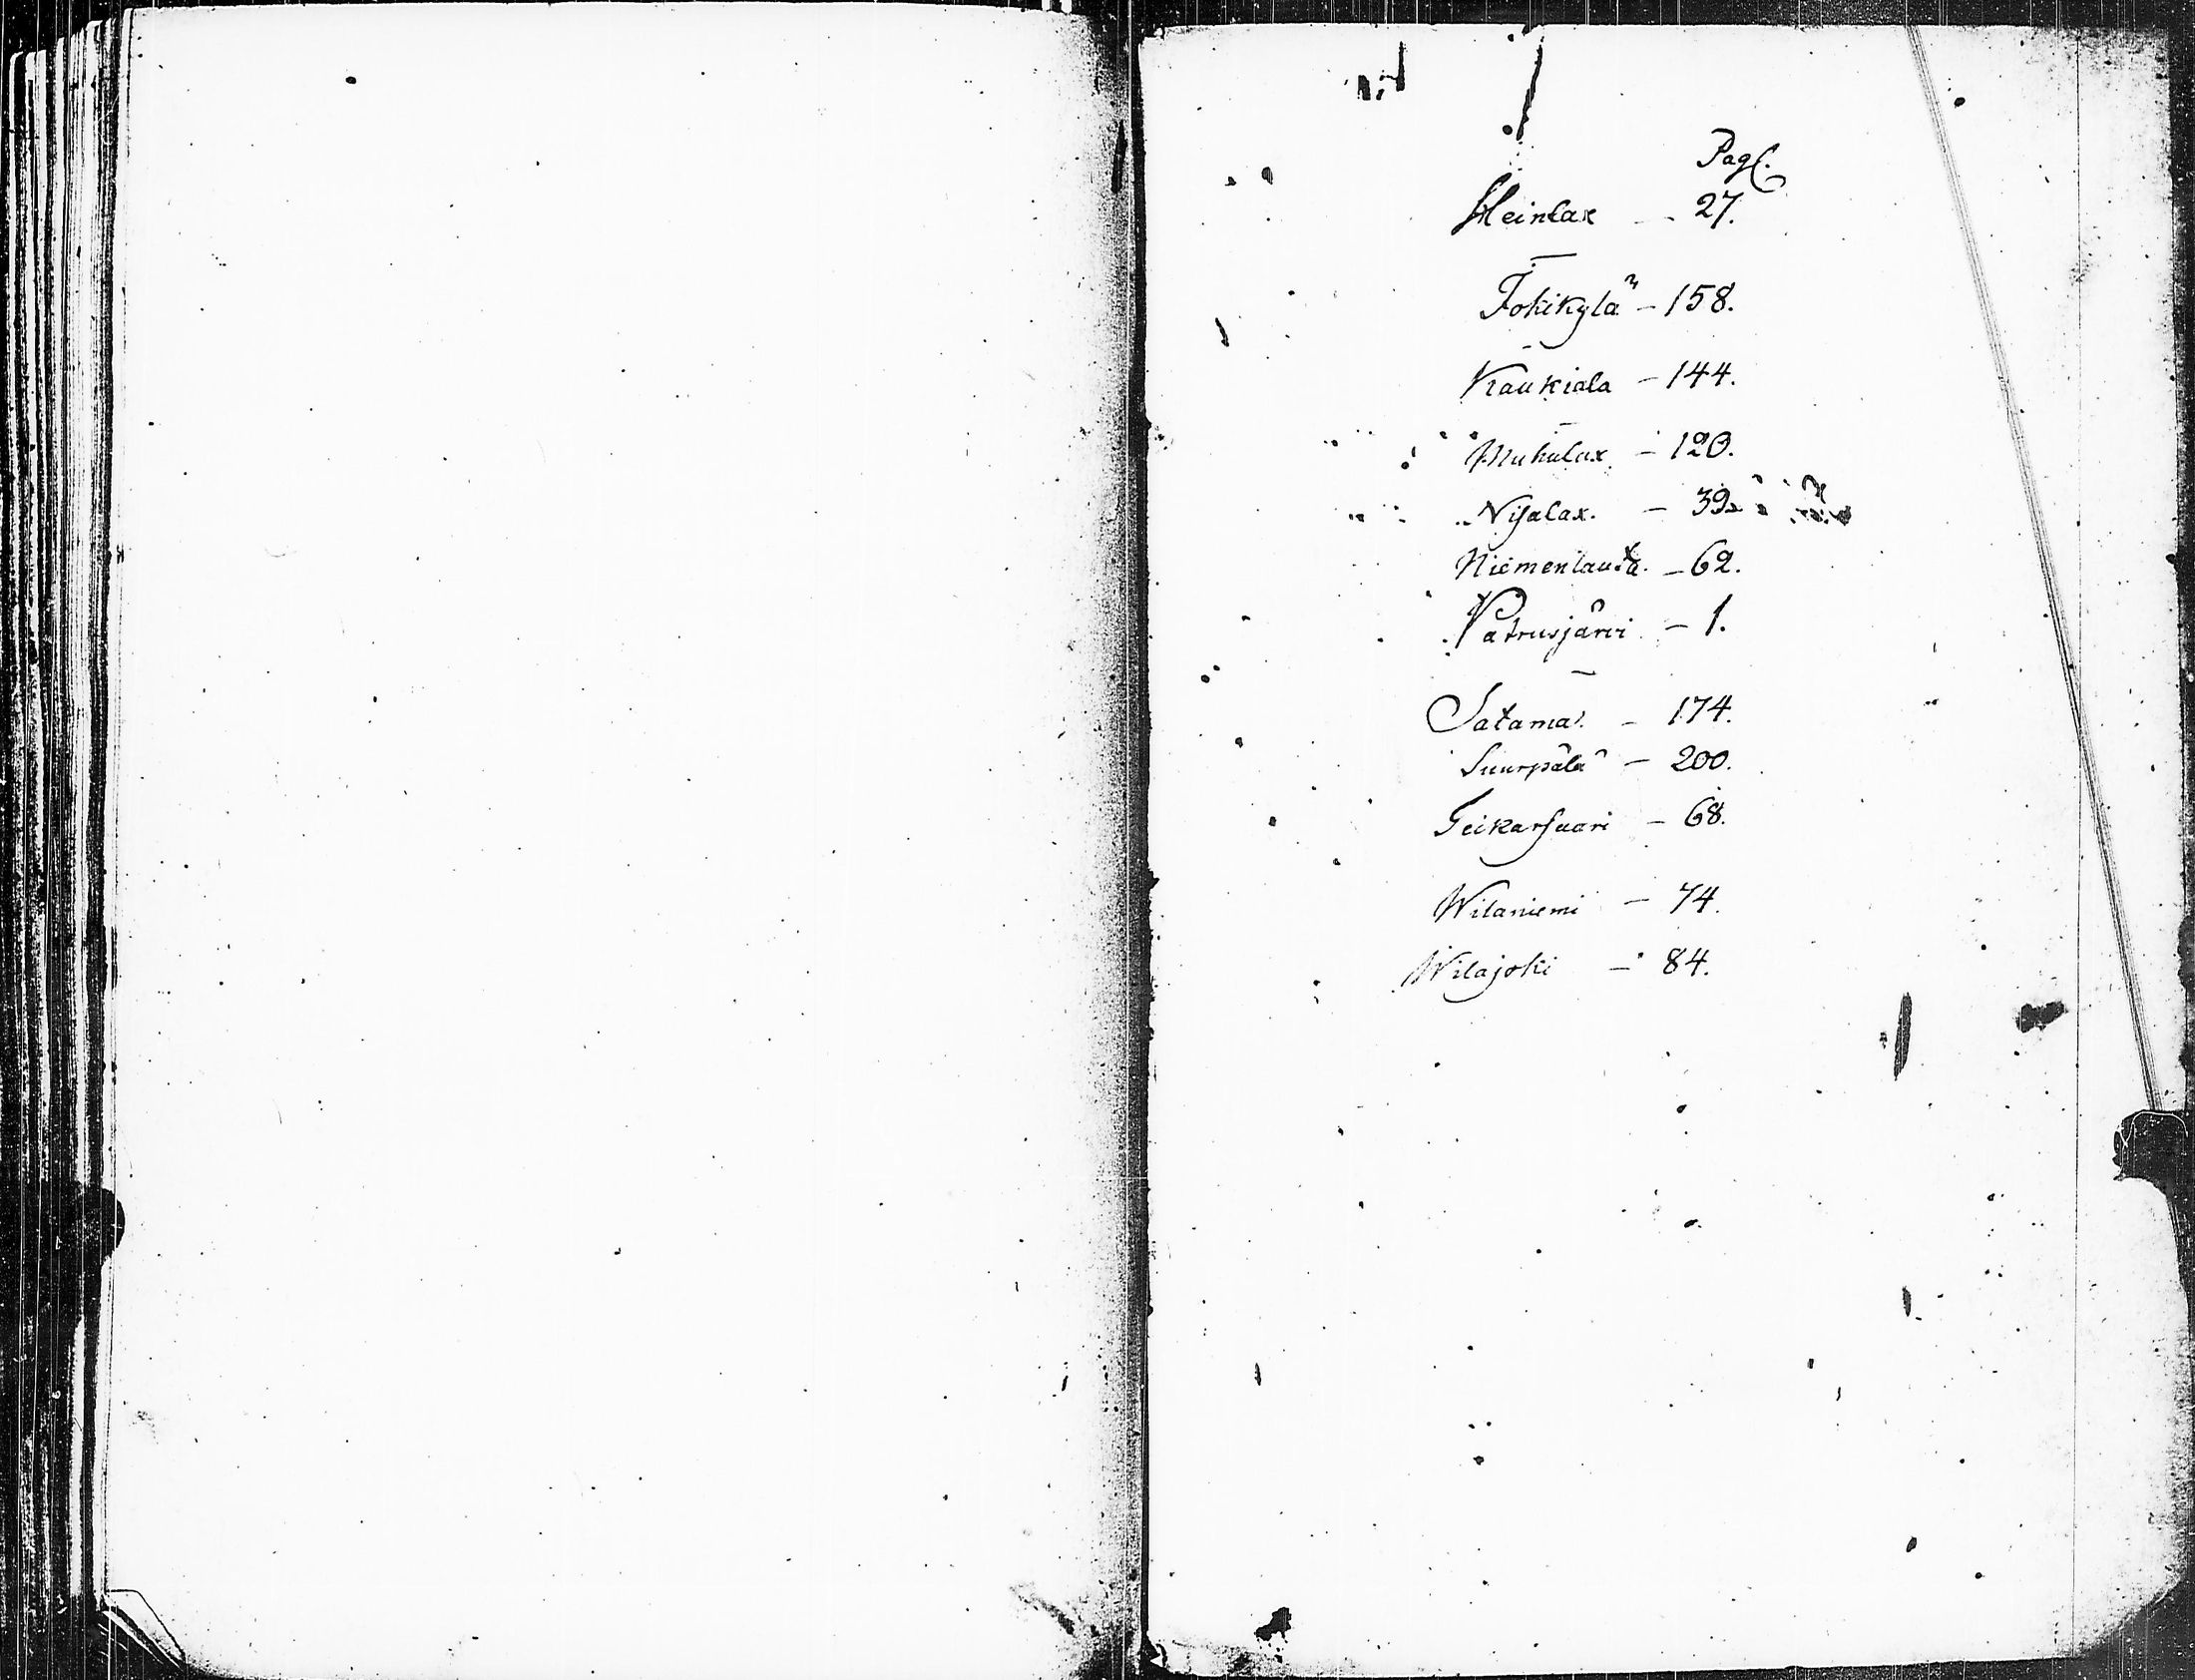 Pag.
Heinlax — 27.
Jokikylä — 158.
Kaukiala — 144.
Muhulax — 120.
Nijalax. — 39.
Niemenlauta. — 62.
Patrusjärvi — 1.
Satama. — 174.
Suurpälä — 200.
Teikarsaari — 68.
Wilaniemi — 74.
Wilajoki — 84.